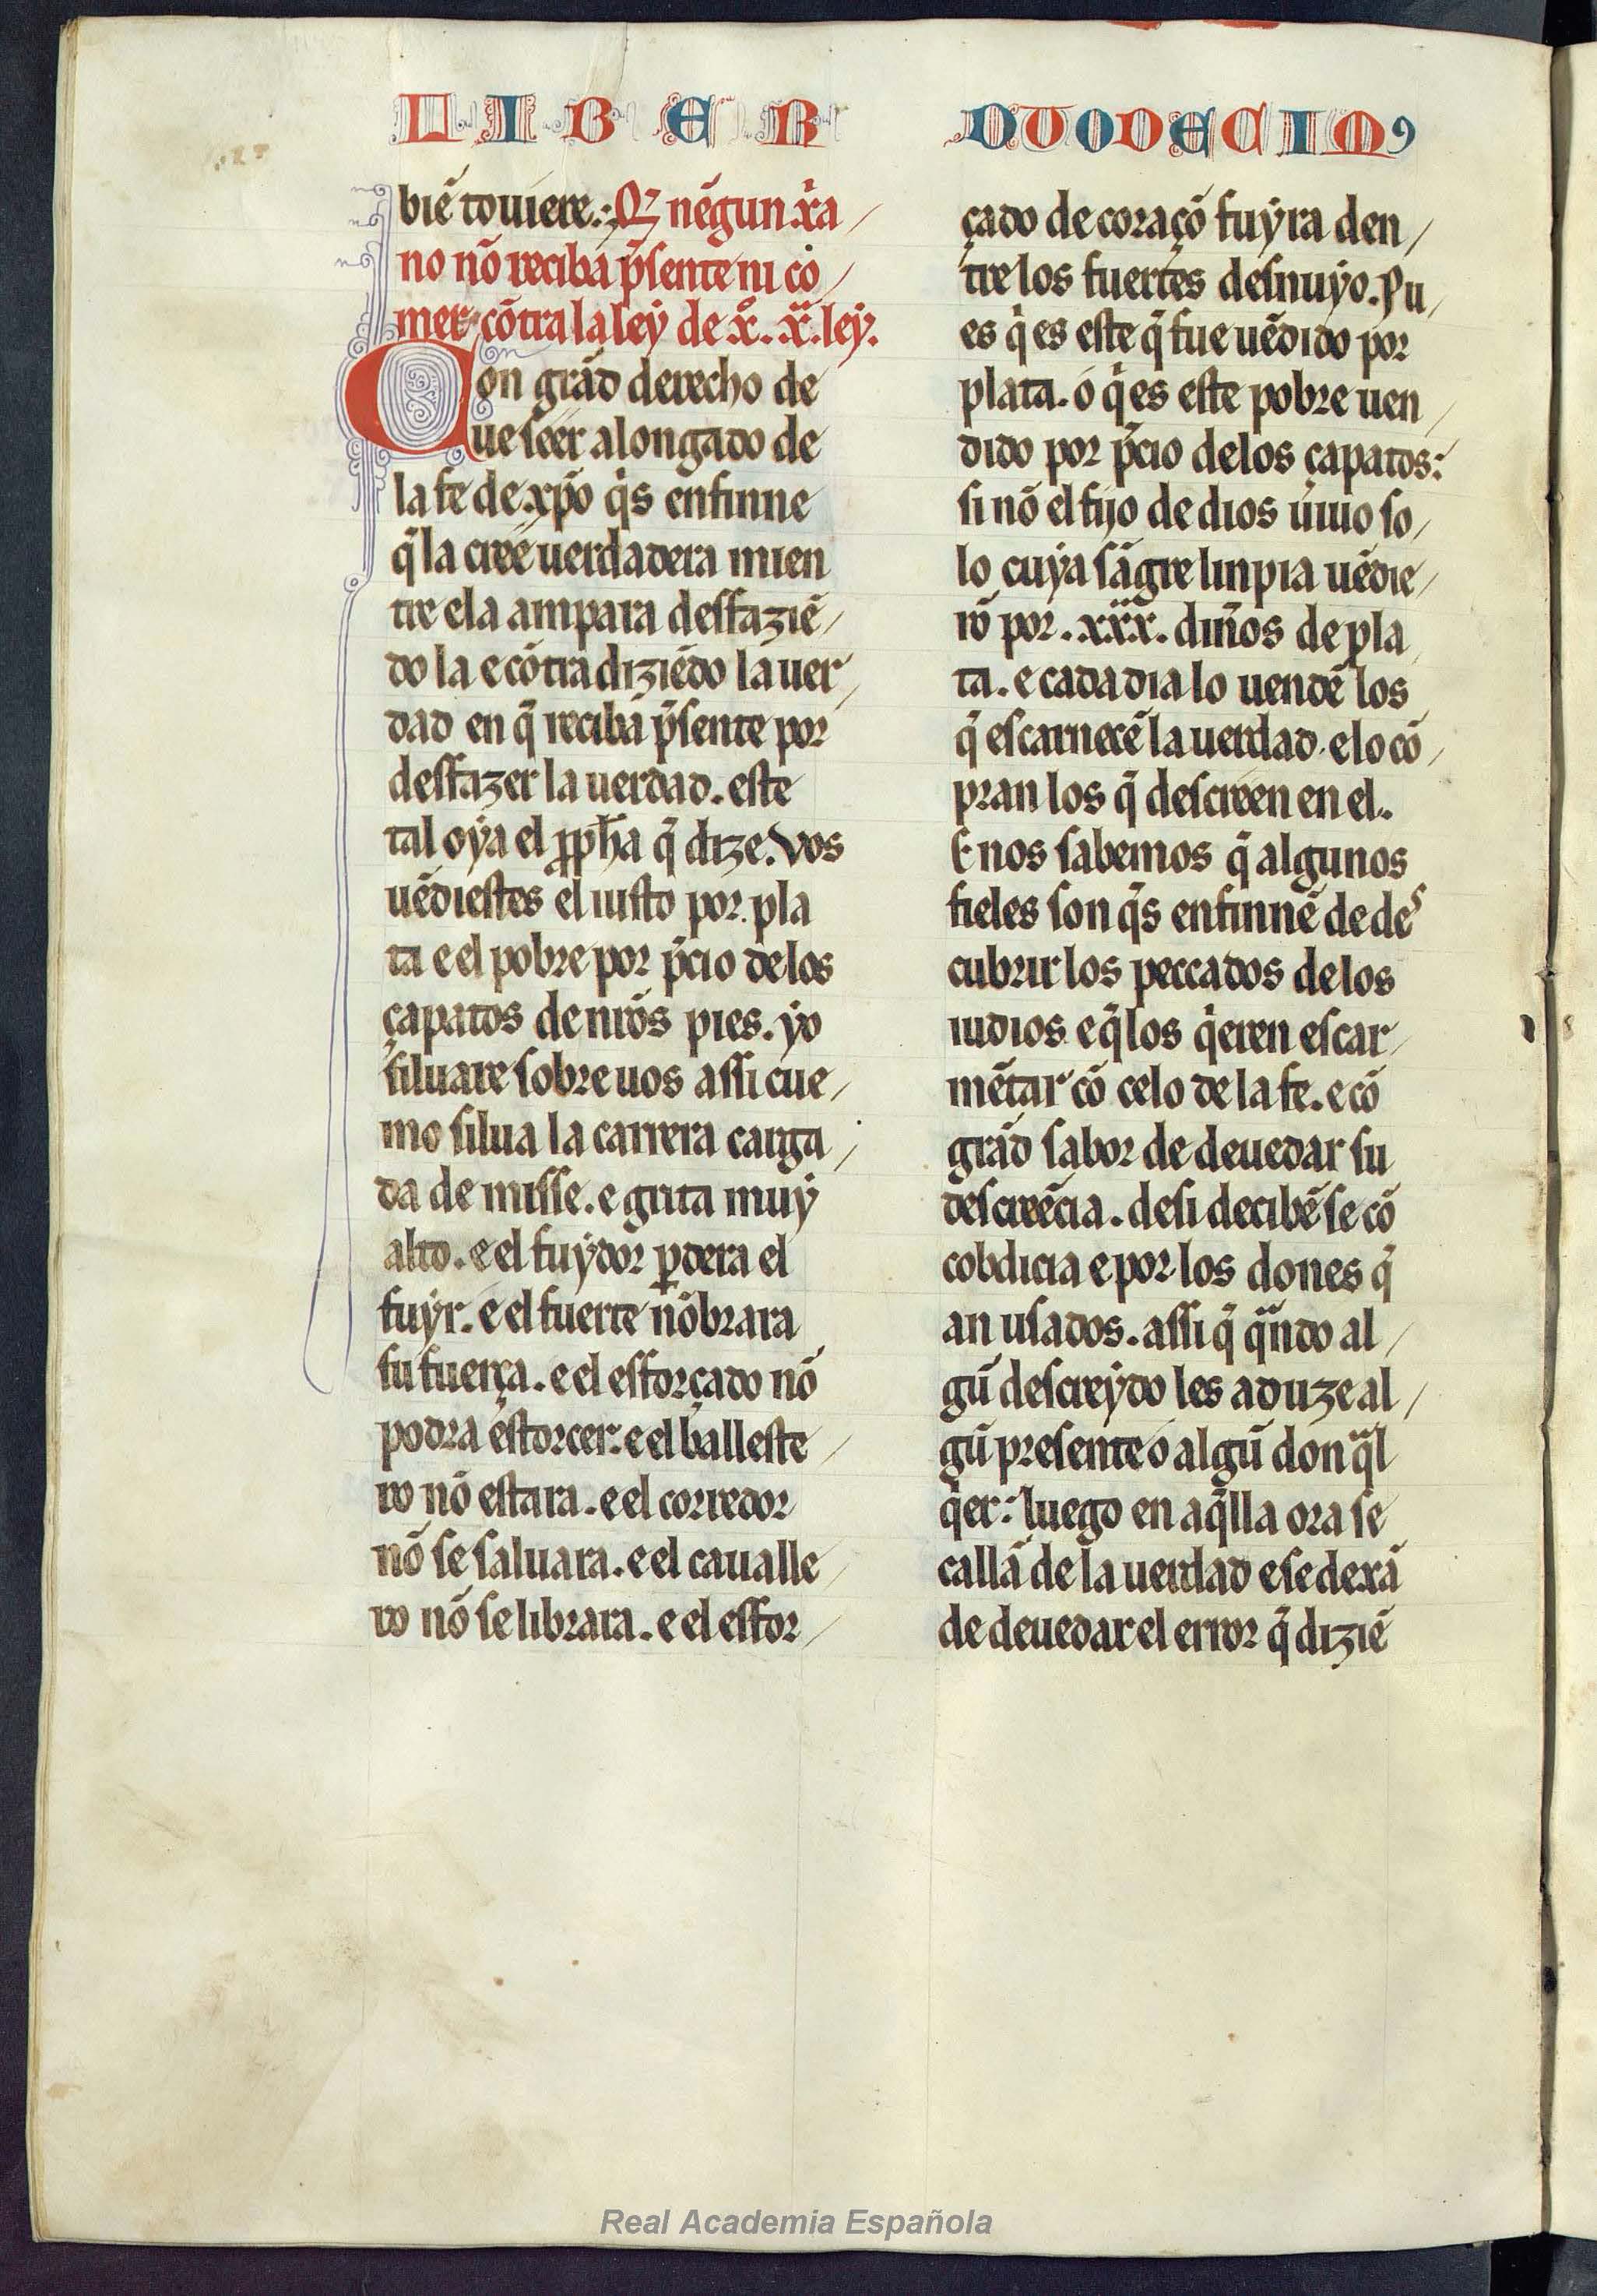 LIBER
DUODECIMꝰ
biẽ touiere. Q̃ nẽgun xͥa
no nõ reciba p̃sente ni co
mer cõtra la ley de xͦ. xͣ. ley.
Con grãd derecho de
ue seer alongado de
la fe de xp̃o q̃s enfinne
q̃ la cree uerdadera mien
tre e la ampara desfaziẽ
do la e cõtradiziẽdo la uer
dad en q̃ reciba p̃sente por
desfazer la uerdad. este
tal oya el ꝓph̃a q̃ dize. Vos
uẽdiestes el iusto por pla
ta e el pobre por p̃cio de los
çapatos de nr̃os pies. yo
siluare sobre uos assi cue
mo silua la carrera carga
da de miesse. e grita muy
alto. e el fuydor ꝑdera el
fuyr. e el fuerte nõbrara
su fuerça. e el esforçado nõ
podra estorcer. e el balleste
ro nõ estara. e el corredor
nõ se saluara. e el caualle
ro nõ se librara. e el esfor
çado de coraçõ fuyra den
tre los fuertes desnuyo. Pu
es qͥ es este q̃ fue uẽdido por
plata. o qͥ es este pobre uen
dido por p̃cio de los çapatos:
si nõ el fijo de dios uiuo so
lo cuya sãgre linpia uẽdie
rõ por .xxx. din̄os de pla
ta. e cada dia lo uendẽ los
q̃ escarnecẽ la uerdad. e lo cõ
pran los q̃ descreen en el.
E nos sabemos q̃ algunos
fieles son q̃s enfinnẽ de deˢ
cubrir los peccados de los
iudios e q̃ los qͥeren escar
mẽtar cõ celo de la fe. e cõ
grãd sabor de deuedar su
descreẽcia. desi decibẽ se cõ
cobdicia e por los dones q̃
an usados. assi q̃ qͣndo al
gũ descreydo les aduze al
gũ presente o algũ don qͣl
qͥer: luego en aq̃lla ora se
callã de la uerdad e se dexã
de deuedar el error q̃ diziẽ
Real Academia Española